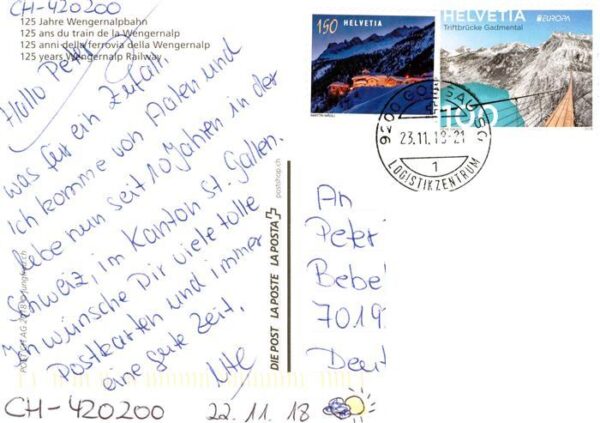 CH-420200
125 Jahre Wengernalpbahn
125 ans du train de la Wengernalp
125 anni della ferrovia della Wengernalp
125 years Wengernalp Railway
Hallo Peter
was für ein Zufall.
Ich komme von Aalen und
lebe nun seit 10 Jahren in der
Schweiz, im Kanton St. Gallen.
Ich wünsche Dir viele tolle
Postkarten und immer
eine gute Zeit,
Ute
CH-420200 22.11.18
DIE POST LA POSTE LA POSTA
postshop.ch
150 HELVETIA
HELVETIA EUROPA
Triftbrücke Gadmental
100
23.11.18-21
1
LOGISTIKZENTRUM
An
Peter
Bebe
7019
Deut